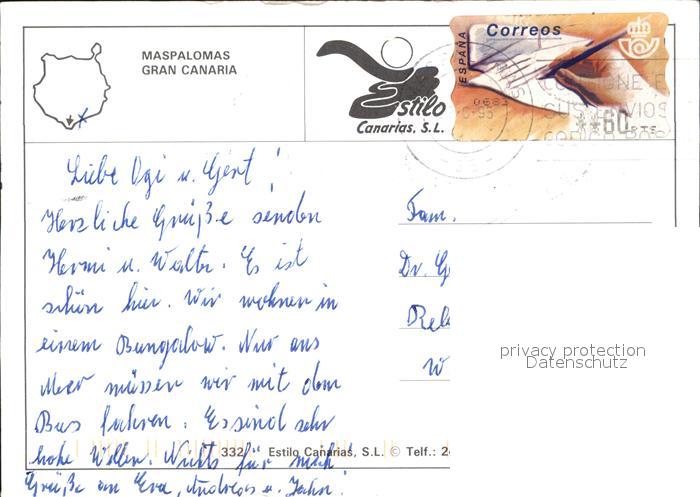 MASPALOMAS
GRAN CANARIA
Estilo
Canarias, S.L.
ESPAÑA
Correos
**60 PTS
Liebe Ogi u. Gert!
Herzliche Grüße senden
Hermi u. Walter. Es ist
schön hier. Wir wohnen in
einem Bungalow. Nur ans
Meer müssen wir mit dem
Bus fahren. Es sind sehr
hohe Wellen. Nichts für mich!
Grüße an Eva, Andreas u. Jahn!
Fam.
Dr. G
Rel
W
privacy protection
Datenschutz
332
Estilo Canarias, S.L. © Telf.: 2